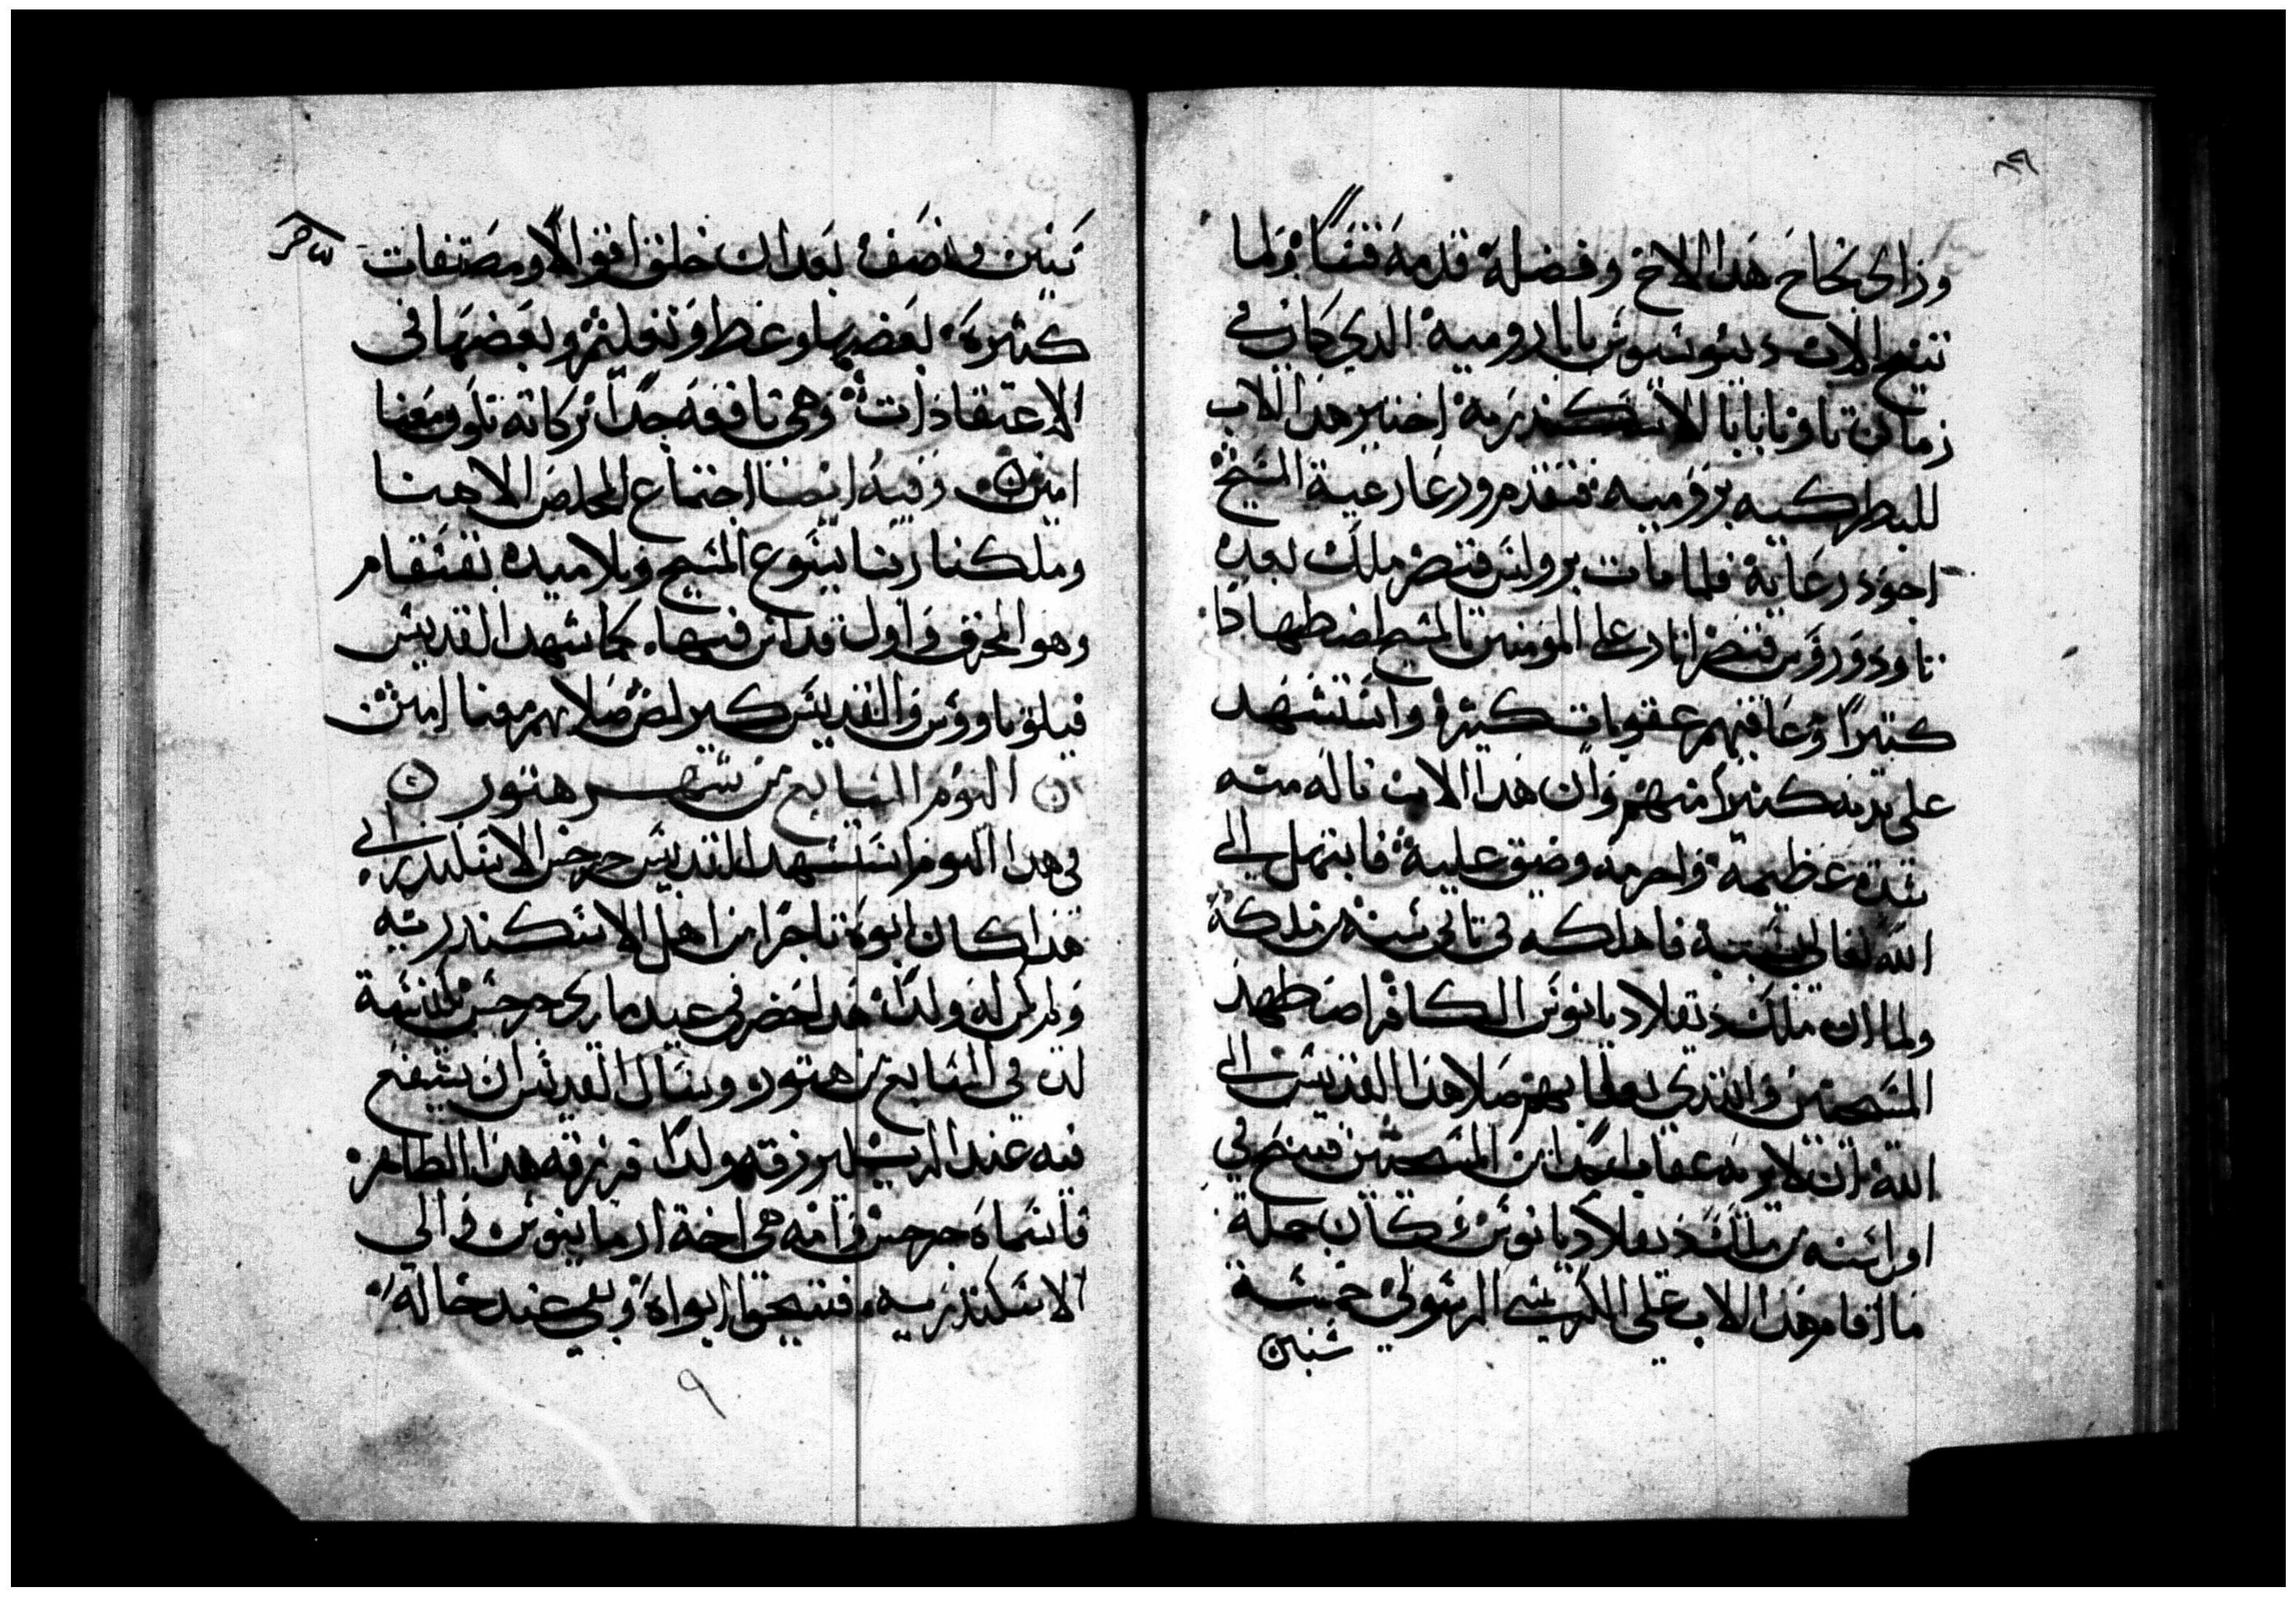 ٨٩
وزاي نجاح هدا الاخ وفضله قدمه قسًا ولما
تنيح الاب ديونسيوس بابا روميه الدي كان في
زمان تاونا بابا الاسكندريه اختير هدا الاب
للبطركيه بروميه فتقدم ورعا رعية المسيح
اجود رعاية فلما مات بروبس قيصر ملك بعده
تاودوروس قيصر اتار على المومنين بالمسيح اضطهادًا
كتيرًا وعاقبهم عقوبات كتيرة واستشهد
على يديه كتيرًا منهم وان هدا الاب ناله منه
شدة عظيمة واحزنه وضيق عليه فابتهل الي
الله تعالى بسببه فاهلكه في تاني سنه من ملكة
ولما ان ملك دقلاديانوس الكافر اضطهد
المسيحيين صلا هدا القديس الي
الله ان لا يريه عقاب احدًا من المسيحيين فتنيح في
اول سنه من ملك دقلاديانوس وكان جملة
ما اقام هدا الاب على الكرسي الرسولي خمسة
سنين
سنين ونصف بعد ان خلف اقوالًا ومصنفات
كتيرة بعضها وعظ وتعليم وبعضها في
الاعتقادات وهي نافعه جدًا بركاته تكون معنا
امين وفيه ايضا اجتماع المخلص الاهنا
وملكنا ربنا يسوع المسيح وتلاميده بقسقام
وهو المحرق واول قداس فيها كما شهد القديس
فيلوتاووس والقديس كيرلص صلاتهم معنا امين
اليوم السابع من شهر هتور
في هدا اليوم استشهد القديس جرجس الاسكندراني
هدا كان ابوه تاجرًا من اهل الاسكندريه
ولم يكن له ولدًا حضر في عيد ماري جرجس كنيسة
لد في السابع من هتور وسال القديس ان يشفع
فيه عند الرب ليرزقه ولدًا فرزقه هدا الطاهر
فاسماه جرجس وامه هي اخة ارمانيوس والي
الاسكندريه فتنيحوا ابواه وبقي عند خاله
٩